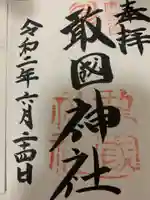 奉拝
敢國神社
令和二年六月二十四日